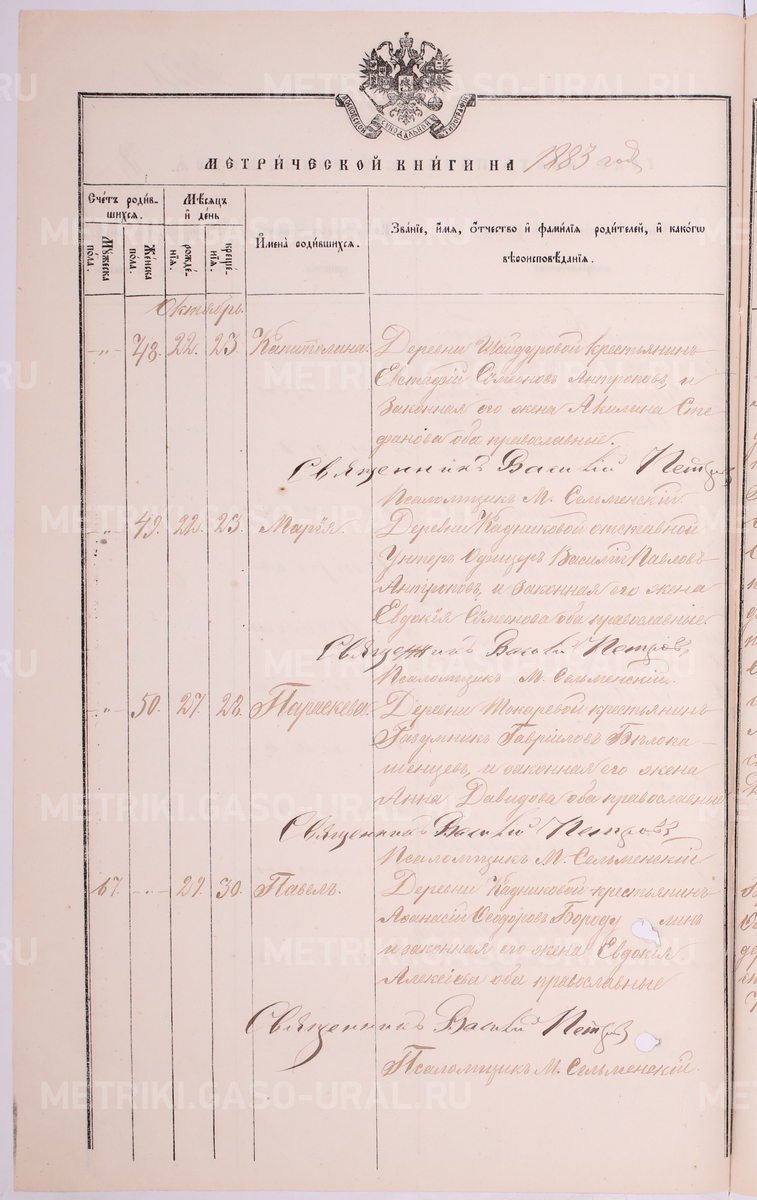 МОСКОВСКОЙ СѴНОДАЛЬНОЙ ТИПОГРАФІИ
МЕТРИ́ЧЕСКОЙ КНИ́ГИ НА 1883 годъ
Сче́тъ роди́вшихся.
Мѣ́сяцъ и҆ де́нь
И҆мена̀ роди́вшихся.
Зва́нїе, и҆́мѧ, ѻ҆́тчество и҆ фамилїѧ роди́телей, и҆ како́гѡ вѣроисповѣ́данїѧ.
Мꙋ́жеска по́ла.
Же́нска по́ла.
рожде́нїѧ.
креще́нїѧ.
Октябрь.
-"- 48. 22. 23. Капитолина. Деревни Шайдуровой крестьянинъ
Евстафій Сѵмеоновъ Антроповъ, и
законная его жена Акилина Сте
фанова оба православные.
Священникъ Василій Петровъ
Псаломщикъ М. Сельменскій.
-"- 49. 22. 23. Марія. Деревни Кадниковой отставной
Унтеръ Офицеръ Василій Павловъ
Антроповъ, и законная его жена
Евдокія Сѵмеонова оба православные.
Священникъ Василій Петровъ
Псаломщикъ М. Сельменскій.
-"- 50. 27. 28. Параскева. Деревни Токаревой крестьянинъ
Разумникъ Гавріиловъ Бѣлопа
шенцевъ, и законная его жена
Анна Давидова оба православные
Священникъ Василій Петровъ
Псаломщикъ М. Сельменскій
67. -"- 27. 30. Павелъ. Деревни Кадниковой крестьянинъ
Аѳанасій Ѳеодоровъ Бороду линъ
и законная его жена Евдокія
Алексіева оба православные
Священникъ Василій Петровъ
Псаломщикъ М. Сельменскій.
METRIKI.GASO-URAL.RU